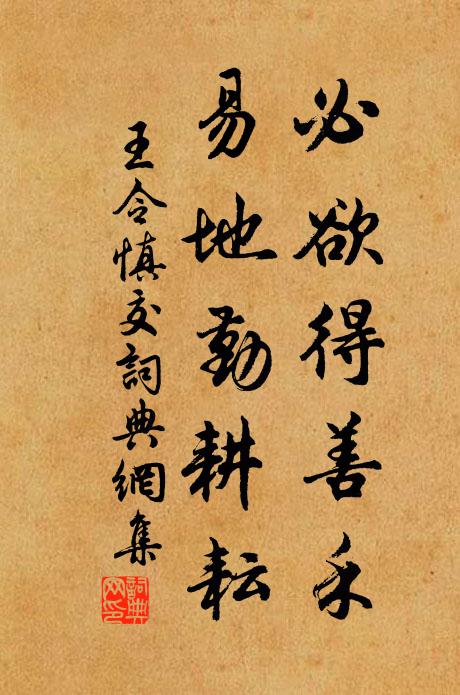 必欲得善禾
易地勤耕耘
王令慎交詞典網集
詞典网印